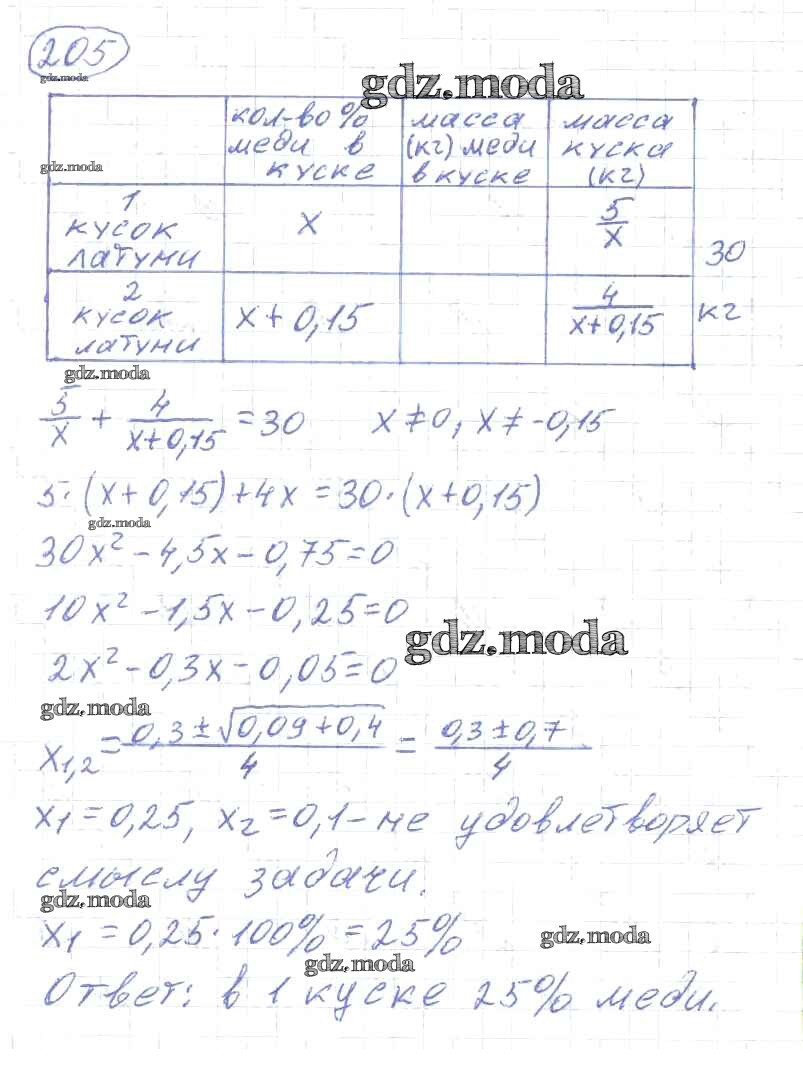 205
gdz.moda
gdz.moda
кол-во %
меди в
куске
масса
(кг) меди
в куске
масса
куска
(кг)
gdz.moda
1
кусок
латуни
x
5/x
30
кг
2
кусок
латуни
x + 0,15
4/(x+0,15)
gdz.moda
5/x + 4/(x+0,15) = 30 x ≠ 0, x ≠ -0,15
5·(x + 0,15) + 4x = 30·(x+0,15)
gdz.moda
30x² - 4,5x - 0,75 = 0
10x² - 1,5x - 0,25 = 0
gdz.moda
2x² - 0,3x - 0,05 = 0
gdz.moda
x1,2 = (0,3 ± √(0,09 + 0,4))/4 = (0,3 ± 0,7)/4
x1 = 0,25, x2 = 0,1 - не удовлетворяет
смыслу задачи.
gdz.moda
x1 = 0,25 · 100% = 25%
gdz.moda
gdz.moda
Ответ: в 1 куске 25% меди.